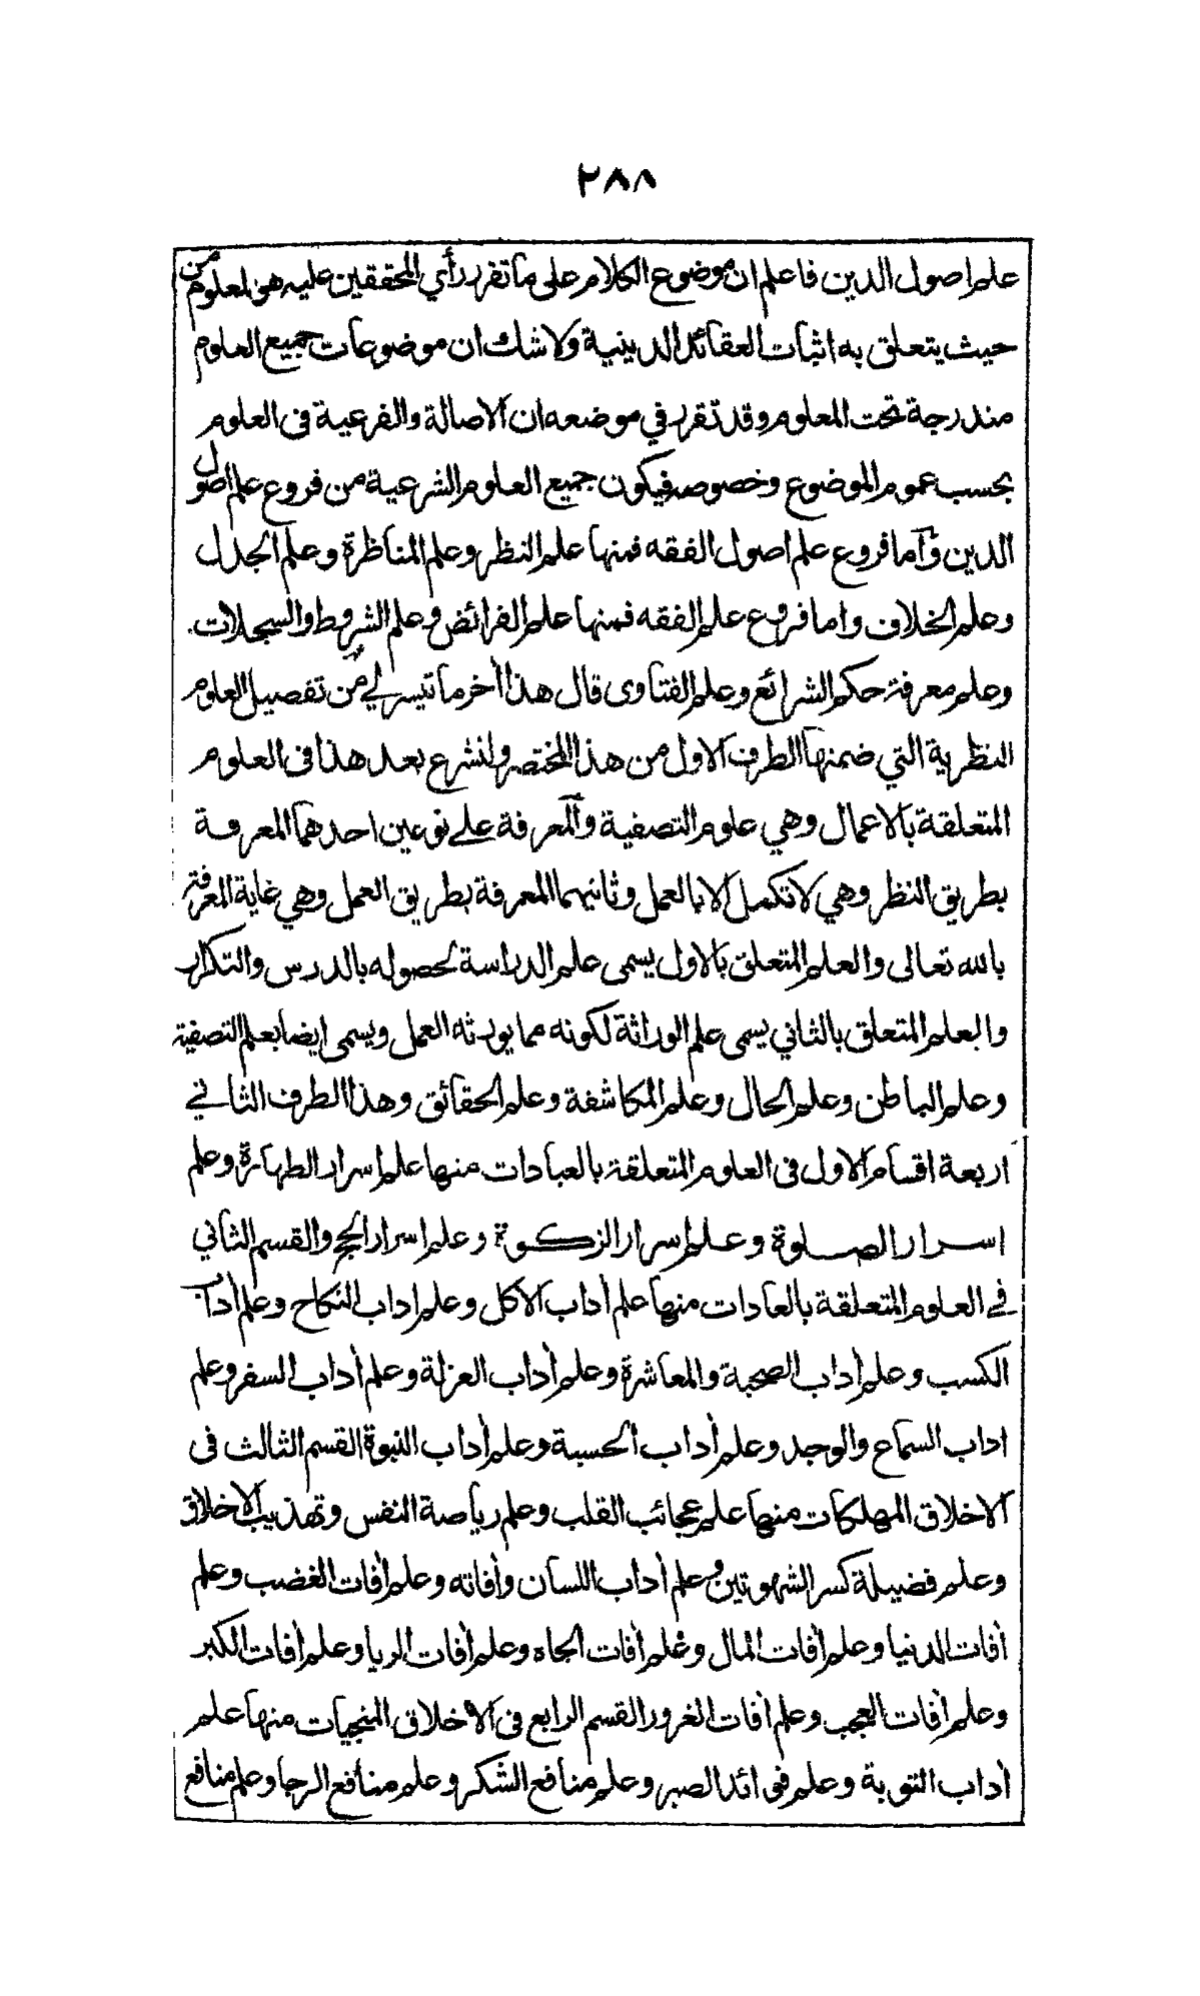 ٢٨٨
علم اصول الدين فاعلم ان موضوع الكلام على ما تقرر رأي المحققين عليه هو المعلوم من
حيث يتعلق به اثبات العقائد الدينية ولا شك ان موضوعات جميع العلوم
مندرجة تحت المعلوم وقد تقرر في موضعه ان الاصالة والفرعية فى العلوم
بحسب عموم الموضوع وخصوصه فيكون جميع العلوم الشرعية من فروع علم اصول
الدين وأما فروع علم اصول الفقه فمنها علم النظر وعلم المناظرة وعلم الجدل
وعلم الخلاف واما فروع علم الفقه فمنها علم الفرائض وعلم الشروط والسجلات
وعلم معرفة حكم الشرائع وعلم الفتاوى قال هذا أخر ما تيسر لي من تفصيل العلوم
النظرية التي ضمنها الطرف الاول من هذا المختصر ولنشرع بعد هذا فى العلوم
المتعلقة بالاعمال وهي علوم التصفية والمعرفة على نوعين احدهما المعرفة
بطريق النظر وهي لا تكمل الا بالعمل وثانيهما المعرفة بطريق العمل وهي غاية المعرفة
بالله تعالى والعلم المتعلق بالاول يسمى علم الدراسة لحصوله بالدرس والتكرار
والعلم المتعلق بالثاني يسمى علم الوراثة لكونه مما يورثه العمل ويسمى ايضا بعلم التصفية
وعلم الباطن وعلم الحال وعلم المكاشفة وعلم الحقائق وهذا الطرف الثاني
اربعة اقسام الاول فى العلوم المتعلقة بالعبادات منها علم اسرار الطهارة وعلم
اسرار الصلوة وعلم اسرار الزكوة وعلم اسرار الحج والقسم الثاني
في العلوم المتعلقة بالعادات منها علم أداب الاكل وعلم اداب النكاح وعلم أداب
الكسب وعلم أداب الصحبة والمعاشرة وعلم أداب العزلة وعلم أداب السفر وعلم
اداب السماع والوجد وعلم أداب الحسبة وعلم أداب النبوة القسم الثالث فى
الاخلاق المهلكات منها علم عجائب القلب وعلم رياضة النفس وتهذيب الاخلاق
وعلم فضيلة كسر الشهوتين وعلم اداب اللسان وأفاته وعلم أفات الغضب وعلم
أفات الدنيا وعلم أفات المال وعلم أفات الجاه وعلم أفات الريا وعلم أفات الكبر
وعلم أفات العجب وعلم أفات الغرور القسم الرابع فى الاخلاق المنجيات منها علم
أداب التوبة وعلم فوائد الصبر وعلم منافع الشكر وعلم منافع الرجا وعلم منافع